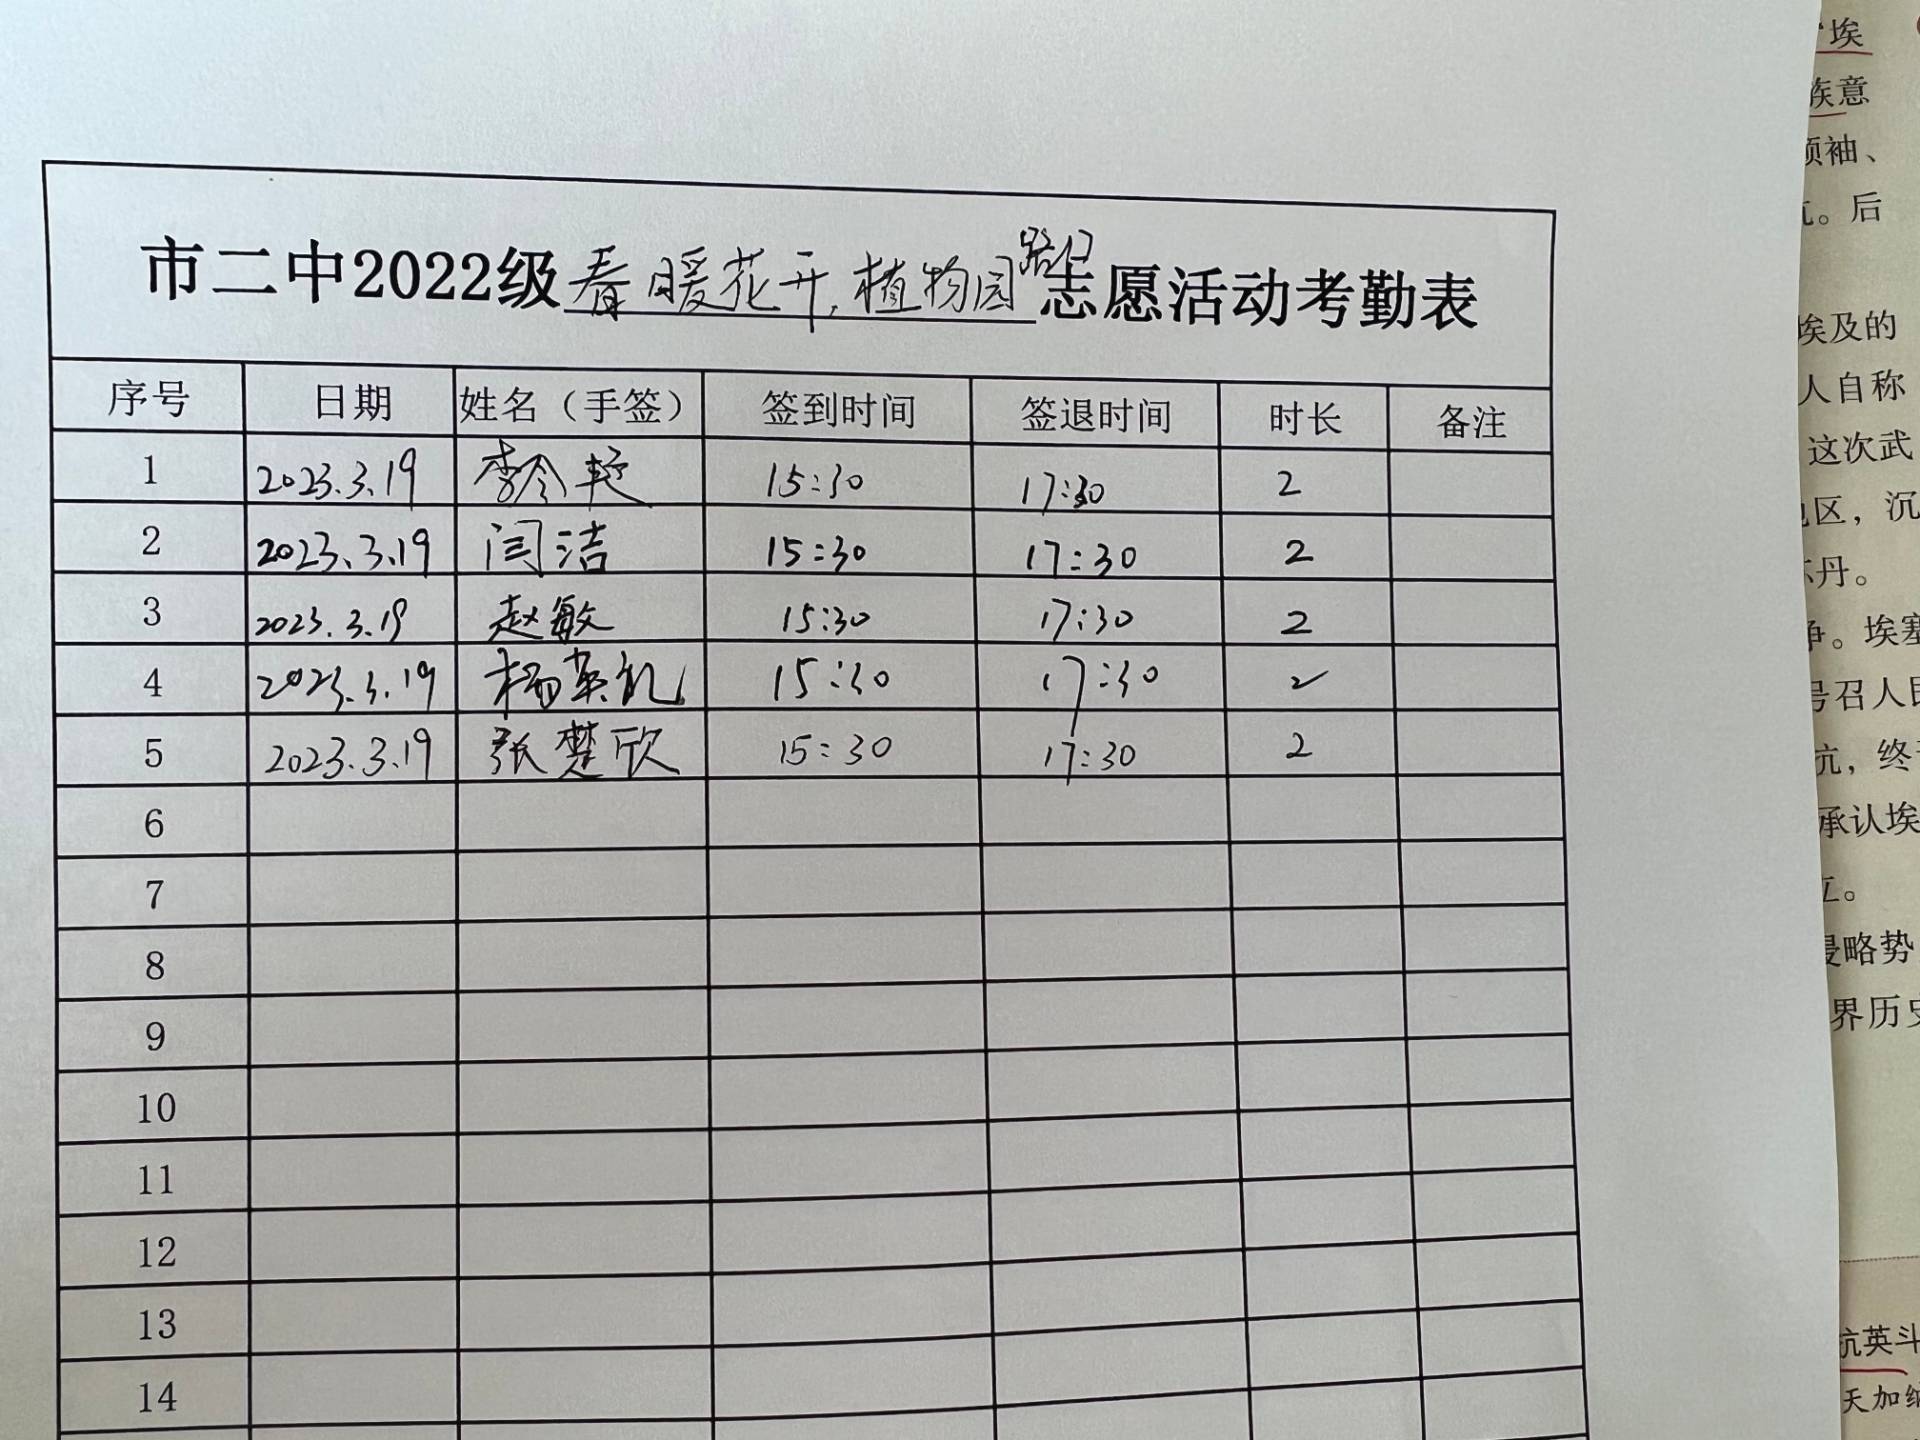 市二中2022级春暖花开,植物园路口志愿活动考勤表
序号 日期 姓名（手签） 签到时间 签退时间 时长 备注
1 2023.3.19 李令 15:30 17:30 2
2 2023.3.19 闫洁 15:30 17:30 2
3 2023.3.19 赵敏 15:30 17:30 2
4 2023.3.19 杨英礼 15:30 17:30 2
5 2023.3.19 张楚欣 15:30 17:30 2
6
7
8
9
10
11
12
13
14
埃
族意
领袖、
。后
埃及的
人自称
这次武
区，沉
丹。
争。埃塞
号召人民
抗，终于
承认埃
立。
侵略势
界历史
抗英斗
天加纳